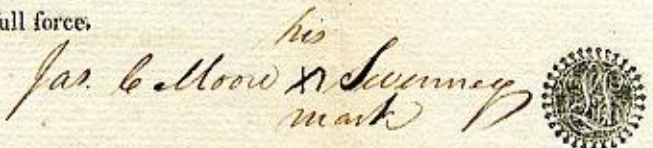 full force.
his
Jas. C Moore X Swenney
mark